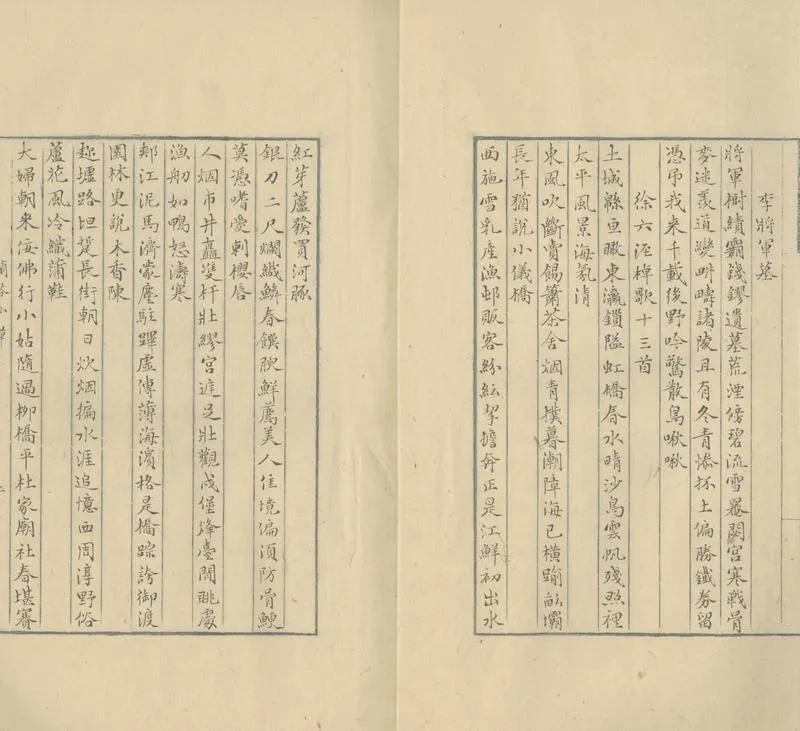 李將軍墓
將軍樹績霸錢鏐遺墓荒湮傍碧流雪暑闕宮寒戰骨
麥迷羨道變畊疇諸陵且有冬青慘抔土偏勝鐵券留
憑弔我来千載後野吟驚散鳥啾啾
徐六涇棹歌十三首
土城緜亘瞰東瀛鎖隘虹橋春水晴沙鳥雲帆殘照裡
太平風景海氛清
東風吹斷賣餳簫茶舍烟青撲暮潮障海已橫踰畝壩
長年猶說小儀橋
西施雪乳產漁邨販客紛紜挈擔奔正是江鮮初出水
紅芽蘆發買河豚
銀刀二尺爛纖鱗春饌腴鮮薦美人佳境偏須防骨鯁
莫憑嗜愛刺櫻唇
人烟市井矗雙杆壯繆宮遮足壯觀戍堡烽臺閒眺處
漁舠如鴨怒濤寒
郟江泥馬濟蒙塵駐蹕虛傳薄海濱格是橋踪誇御渡
園林更說木香陳
趂墟路坦踅長街朝日炊烟揙水涯追憶西周淳野俗
蘆花風冷織蒲鞋
大婦朝来佞佛行小姑隨過柳橋平杜家廟社春堪賽